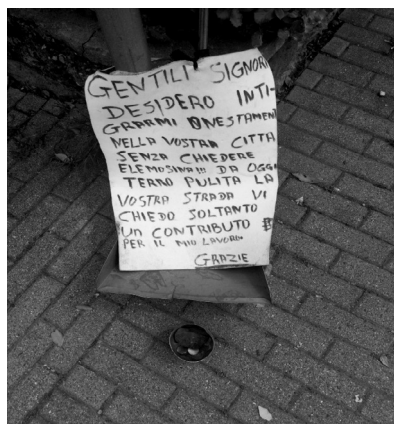 GENTILI SIGNORI
DESIDERO INTI-
GRARMI ONESTAMEN
NELLA VOSTRA CITTA
SENZA CHIEDERE
ELEMOSINA!!! DA OGGI
TERRO PULITA LA
VOSTRA STRADA VI
CHIEDO SOLTANTO
UN CONTRIBUTO
PER IL MIO LAVORO
GRAZIE